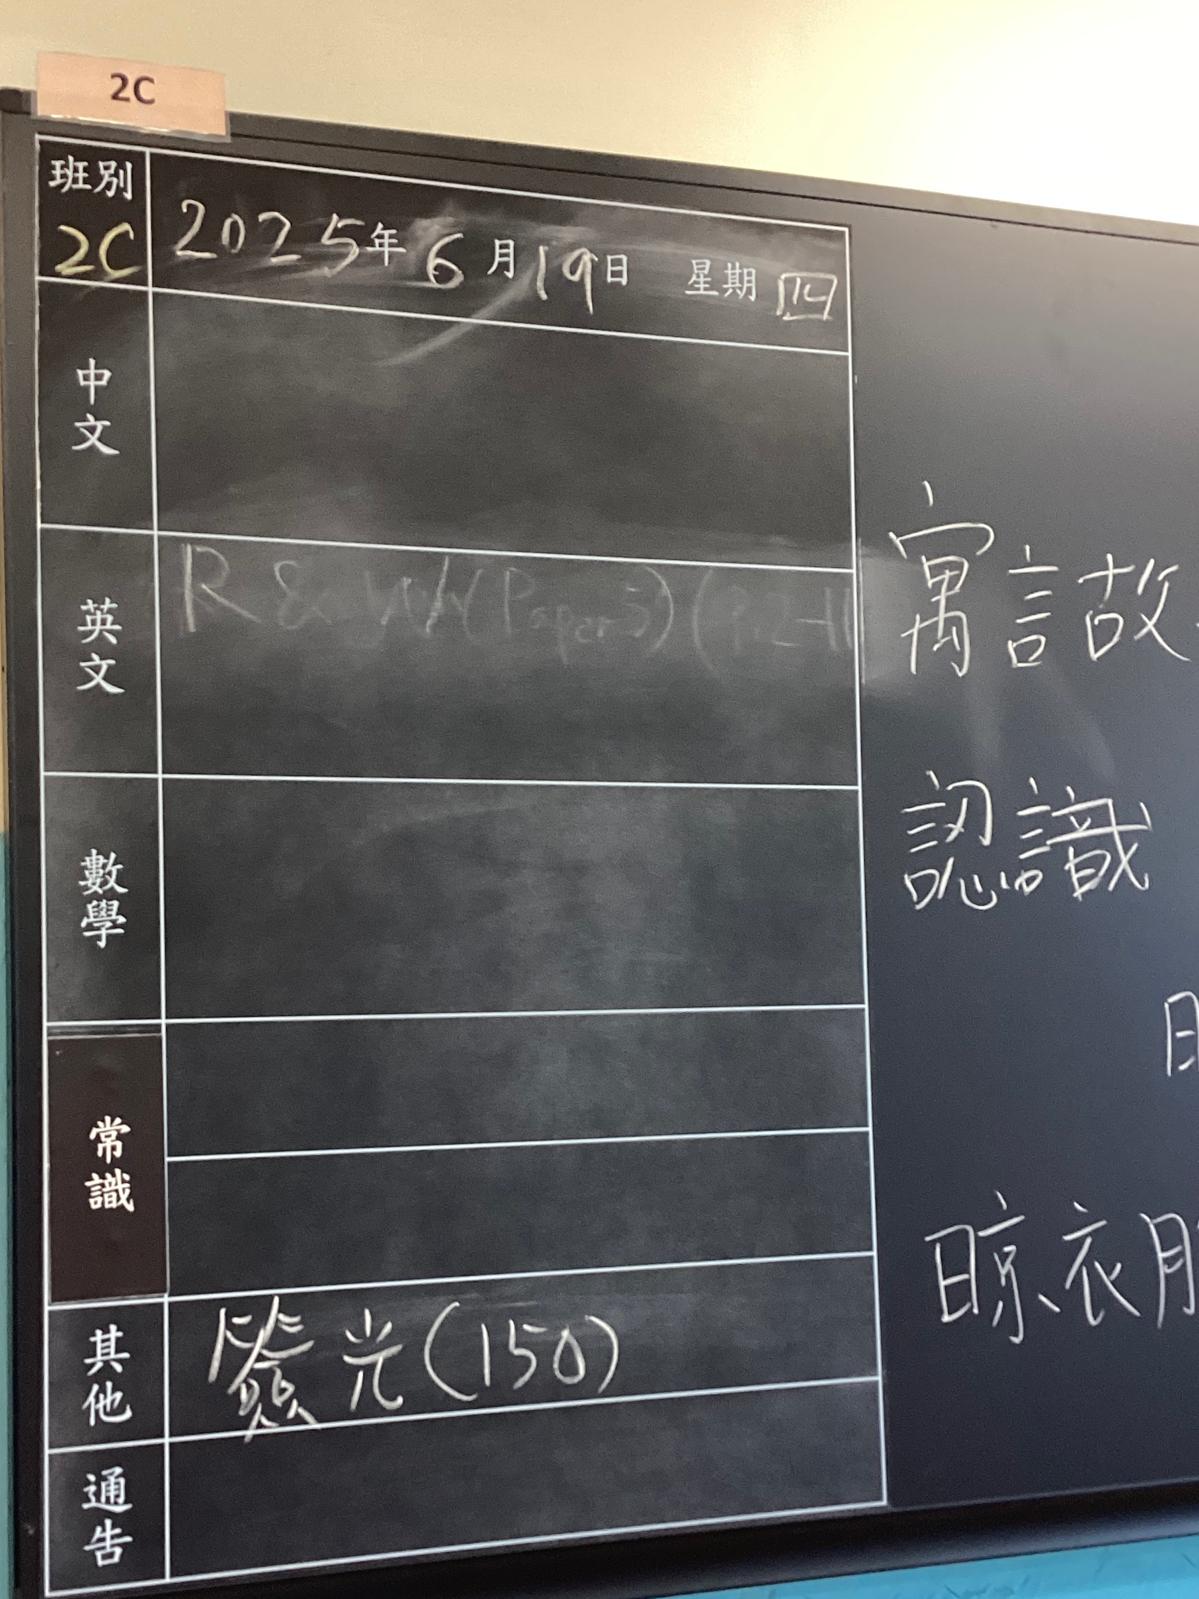 2C
班別
2C
2025年6月19日 星期四
中文
英文
R & W (Paper 3) (P.2-11
數學
常識
其他
光(150)
通告
寓言故
認識
日
晾衣